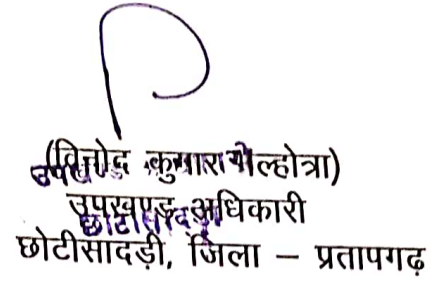 (विनोद कुमार मल्होत्रा)
उपखण्ड अधिकारी
छोटीसादड़ी, जिला – प्रतापगढ़